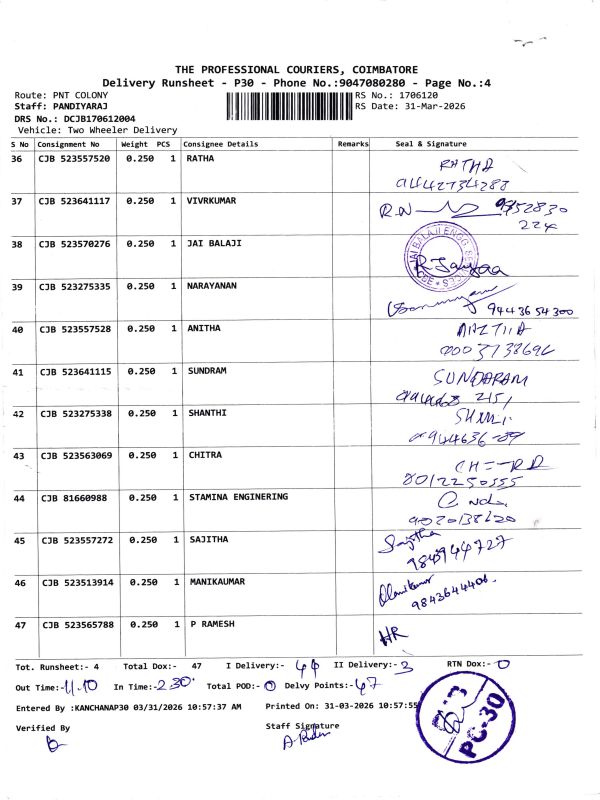 THE PROFESSIONAL COURIERS, COIMBATORE
Delivery Runsheet - P30 - Phone No.:9047080280 - Page No.:4
Route: PNT COLONY
RS No.: 1706120
Staff: PANDIYARAJ
RS Date: 31-Mar-2026
DRS No.: DCJB170612004
Vehicle: Two Wheeler Delivery
S No Consignment No Weight PCS Consignee Details Remarks Seal & Signature
36 CJB 523557520 0.250 1 RATHA RATHA
37 CJB 523641117 0.250 1 VIVRKUMAR
224
38 CJB 523570276 0.250 1 JAI BALAJI
39 CJB 523275335 0.250 1 NARAYANAN
9443654300
40 CJB 523557528 0.250 1 ANITHA
41 CJB 523641115 0.250 1 SUNDRAM SUNDARAM
42 CJB 523275338 0.250 1 SHANTHI
43 CJB 523563069 0.250 1 CHITRA
8012250555
44 CJB 81660988 0.250 1 STAMINA ENGINERING
45 CJB 523557272 0.250 1 SAJITHA Sajitha
9843944727
46 CJB 523513914 0.250 1 MANIKAUMAR Manikumar
9843644406.
47 CJB 523565788 0.250 1 P RAMESH HR
Tot. Runsheet:- 4 Total Dox:- 47 I Delivery:- 44 II Delivery:- 3 RTN Dox:- 0
Out Time:- 11.10 In Time:- 2.30 Total POD:- 0 Delvy Points:- 47
Entered By :KANCHANAP30 03/31/2026 10:57:37 AM Printed On: 31-03-2026 10:57:55
Verified By Staff Signature
PC-30